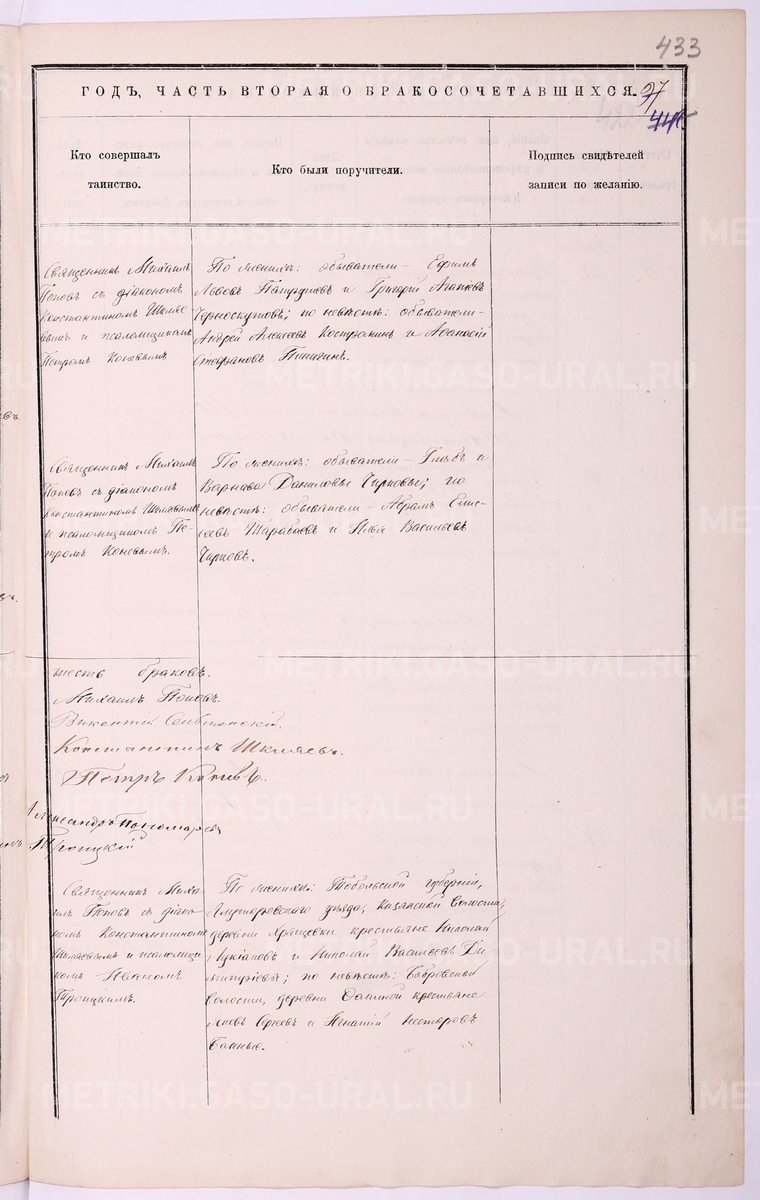 433
ГОДЪ, ЧАСТЬ ВТОРАЯ О БРАКОСОЧЕТАВШИХСЯ.
97
Кто совершалъ
таинство.
Кто были поручители.
Подпись свидѣтелей
записи по желанію.
Священникъ Михаилъ
Поповъ съ діакономъ
Константиномъ Шкляе-
вымъ и псаломщикомъ
Петромъ Коневымъ
По женихѣ: обыватели – Ефимъ
Львовъ и Григорій Агаповъ
Черноскутовъ; по невѣстѣ: обыватели –
Андрей Алексѣевъ Костромин и Аѳонасій
Стефановъ Пинигинъ.
Священникъ Михаилъ
Поповъ съ діакономъ
Константиномъ Шкляевымъ
и псаломщикомъ Пе-
тромъ Коневымъ.
По женихѣ: обыватели – Глѣбъ и
Варнава Даниловы Чирковы; по
невѣстѣ: обыватели – Абрамъ Елис-
сеевъ и Илья Васильевъ
Чирковъ.
шесть браковъ.
Михаилъ Поповъ.
Викентій
Константинъ Шкляевъ.
Петръ Коневъ
Александръ Пономаревъ
Троицкій
Священникъ Миха-
илъ Поповъ съ діако-
номъ Константиномъ
Шкляевымъ и псаломщи-
комъ Иваномъ
Троицкимъ.
По женихѣ: Тобольской губерніи,
Ялуторовскаго уѣзда, Кизакской волости,
деревни крестьяне Николай
Лукіановъ и Николай Васильевъ Ди-
митріевы; по невѣстѣ: Бобровской
волости, деревни крестьяне
Яковъ Сергѣевъ и Игнатій Несторовъ
Банные.
METRIKI.GASO-URAL.RU
METRIKI.GASO-URAL.RU
METRIKI.GASO-URAL.RU
METRIKI.GASO-URAL.RU